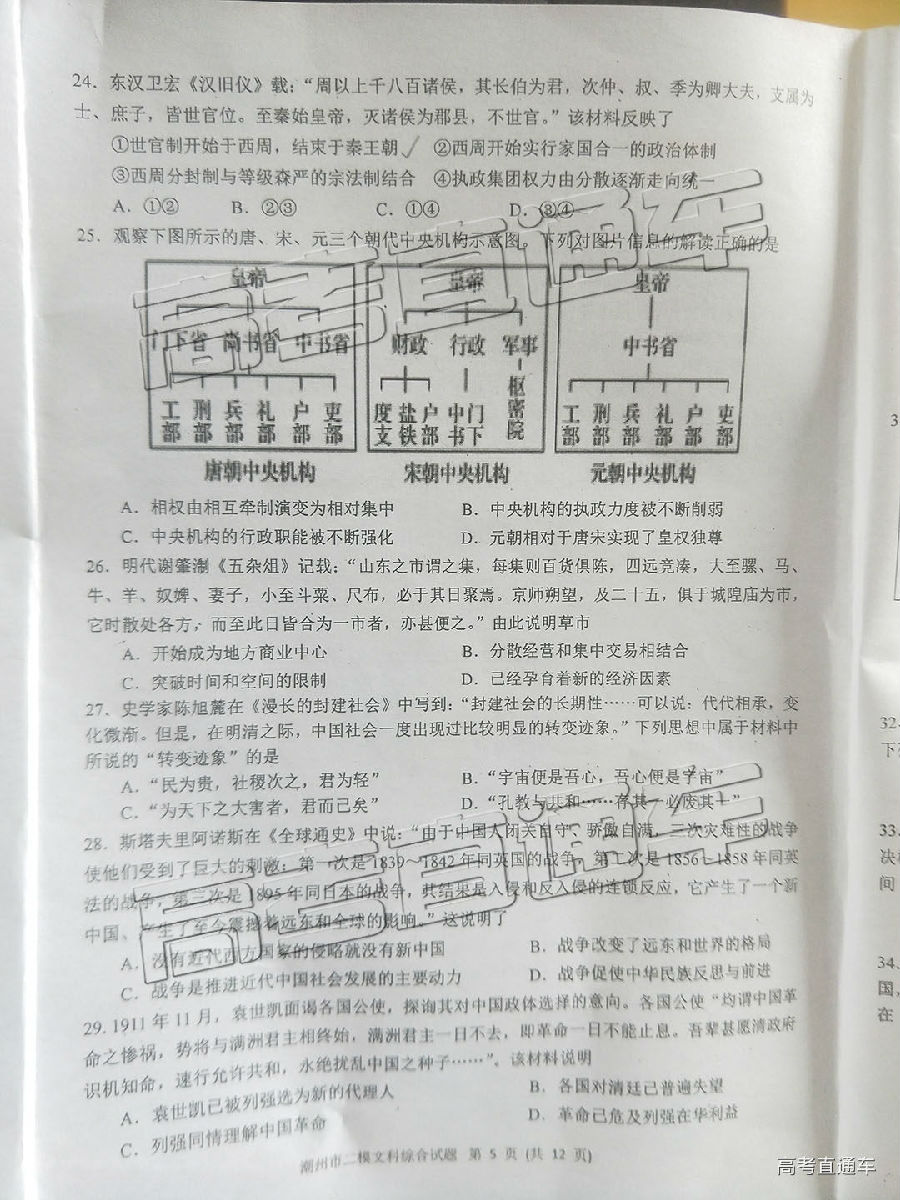 24．东汉卫宏《汉旧仪》载：“周以上千八百诸侯，其长伯为君，次仲、叔、季为卿大夫，支属为
士、庶子，皆世官位。至秦始皇帝，灭诸侯为郡县，不世官。”该材料反映了
①世官制开始于西周，结束于秦王朝 ②西周开始实行家国合一的政治体制
③西周分封制与等级森严的宗法制结合 ④执政集团权力由分散逐渐走向统一
A．①② B．②③ C．①④ D．③④
25．观察下图所示的唐、宋、元三个朝代中央机构示意图。下列对图片信息的解读正确的是
皇帝 皇帝 皇帝
门下省 尚书省 中书省 财政 行政 军事 中书省
工部 刑部 兵部 礼部 户部 吏部 度支 盐铁 户部 中书 门下 枢密院 工部 刑部 兵部 礼部 户部 吏部
唐朝中央机构 宋朝中央机构 元朝中央机构
A．相权由相互牵制演变为相对集中 B．中央机构的执政力度被不断削弱
C．中央机构的行政职能被不断强化 D．元朝相对于唐宋实现了皇权独尊
26．明代谢肇淛《五杂俎》记载：“山东之市谓之集，每集则百货俱陈，四远竞凑，大至骡、马、
牛、羊、奴婢、妻子，小至斗粟、尺布，必于其日聚焉。京师朔望，及二十五，俱于城隍庙为市，
它时散处各方，而至此日皆合为一市者，亦甚便之。”由此说明草市
A．开始成为地方商业中心 B．分散经营和集中交易相结合
C．突破时间和空间的限制 D．已经孕育着新的经济因素
27．史学家陈旭麓在《漫长的封建社会》中写到：“封建社会的长期性……可以说：代代相承，变
化微渐。但是，在明清之际，中国社会一度出现过比较明显的转变迹象。”下列思想中属于材料中
所说的“转变迹象”的是
A．“民为贵，社稷次之，君为轻” B．“宇宙便是吾心，吾心便是宇宙”
C．“为天下之大害者，君而已矣” D．“孔教与共和……存其一必废其一”
28．斯塔夫里阿诺斯在《全球通史》中说：“由于中国人闭关自守、骄傲自满，三次灾难性的战争
使他们受到了巨大的刺激：第一次是1839～1842年同英国的战争，第二次是1856～1858年同英
法的战争，第三次是1895年同日本的战争，其结果是入侵和反入侵的连锁反应，它产生了一个新
中国、产生了至今震撼着远东和全球的影响。”这说明了
A．没有近代西方国家的侵略就没有新中国 B．战争改变了远东和世界的格局
C．战争是推进近代中国社会发展的主要动力 D．战争促使中华民族反思与前进
29. 1911年11月，袁世凯面谒各国公使，探询其对中国政体选择的意向。各国公使“均谓中国革
命之惨祸，势将与满洲君主相终始，满洲君主一日不去，即革命一日不能止息。吾辈甚愿清政府
识机知命，速行允许共和，永绝扰乱中国之种子……”。该材料说明
A．袁世凯已被列强选为新的代理人 B．各国对清廷已普遍失望
C．列强同情理解中国革命 D．革命已危及列强在华利益
潮州市二模文科综合试题 第 5 页 (共 12 页)
32.
下
33.
决
间
34.
国，
在
高考直通车
高考直通车
高考直通车